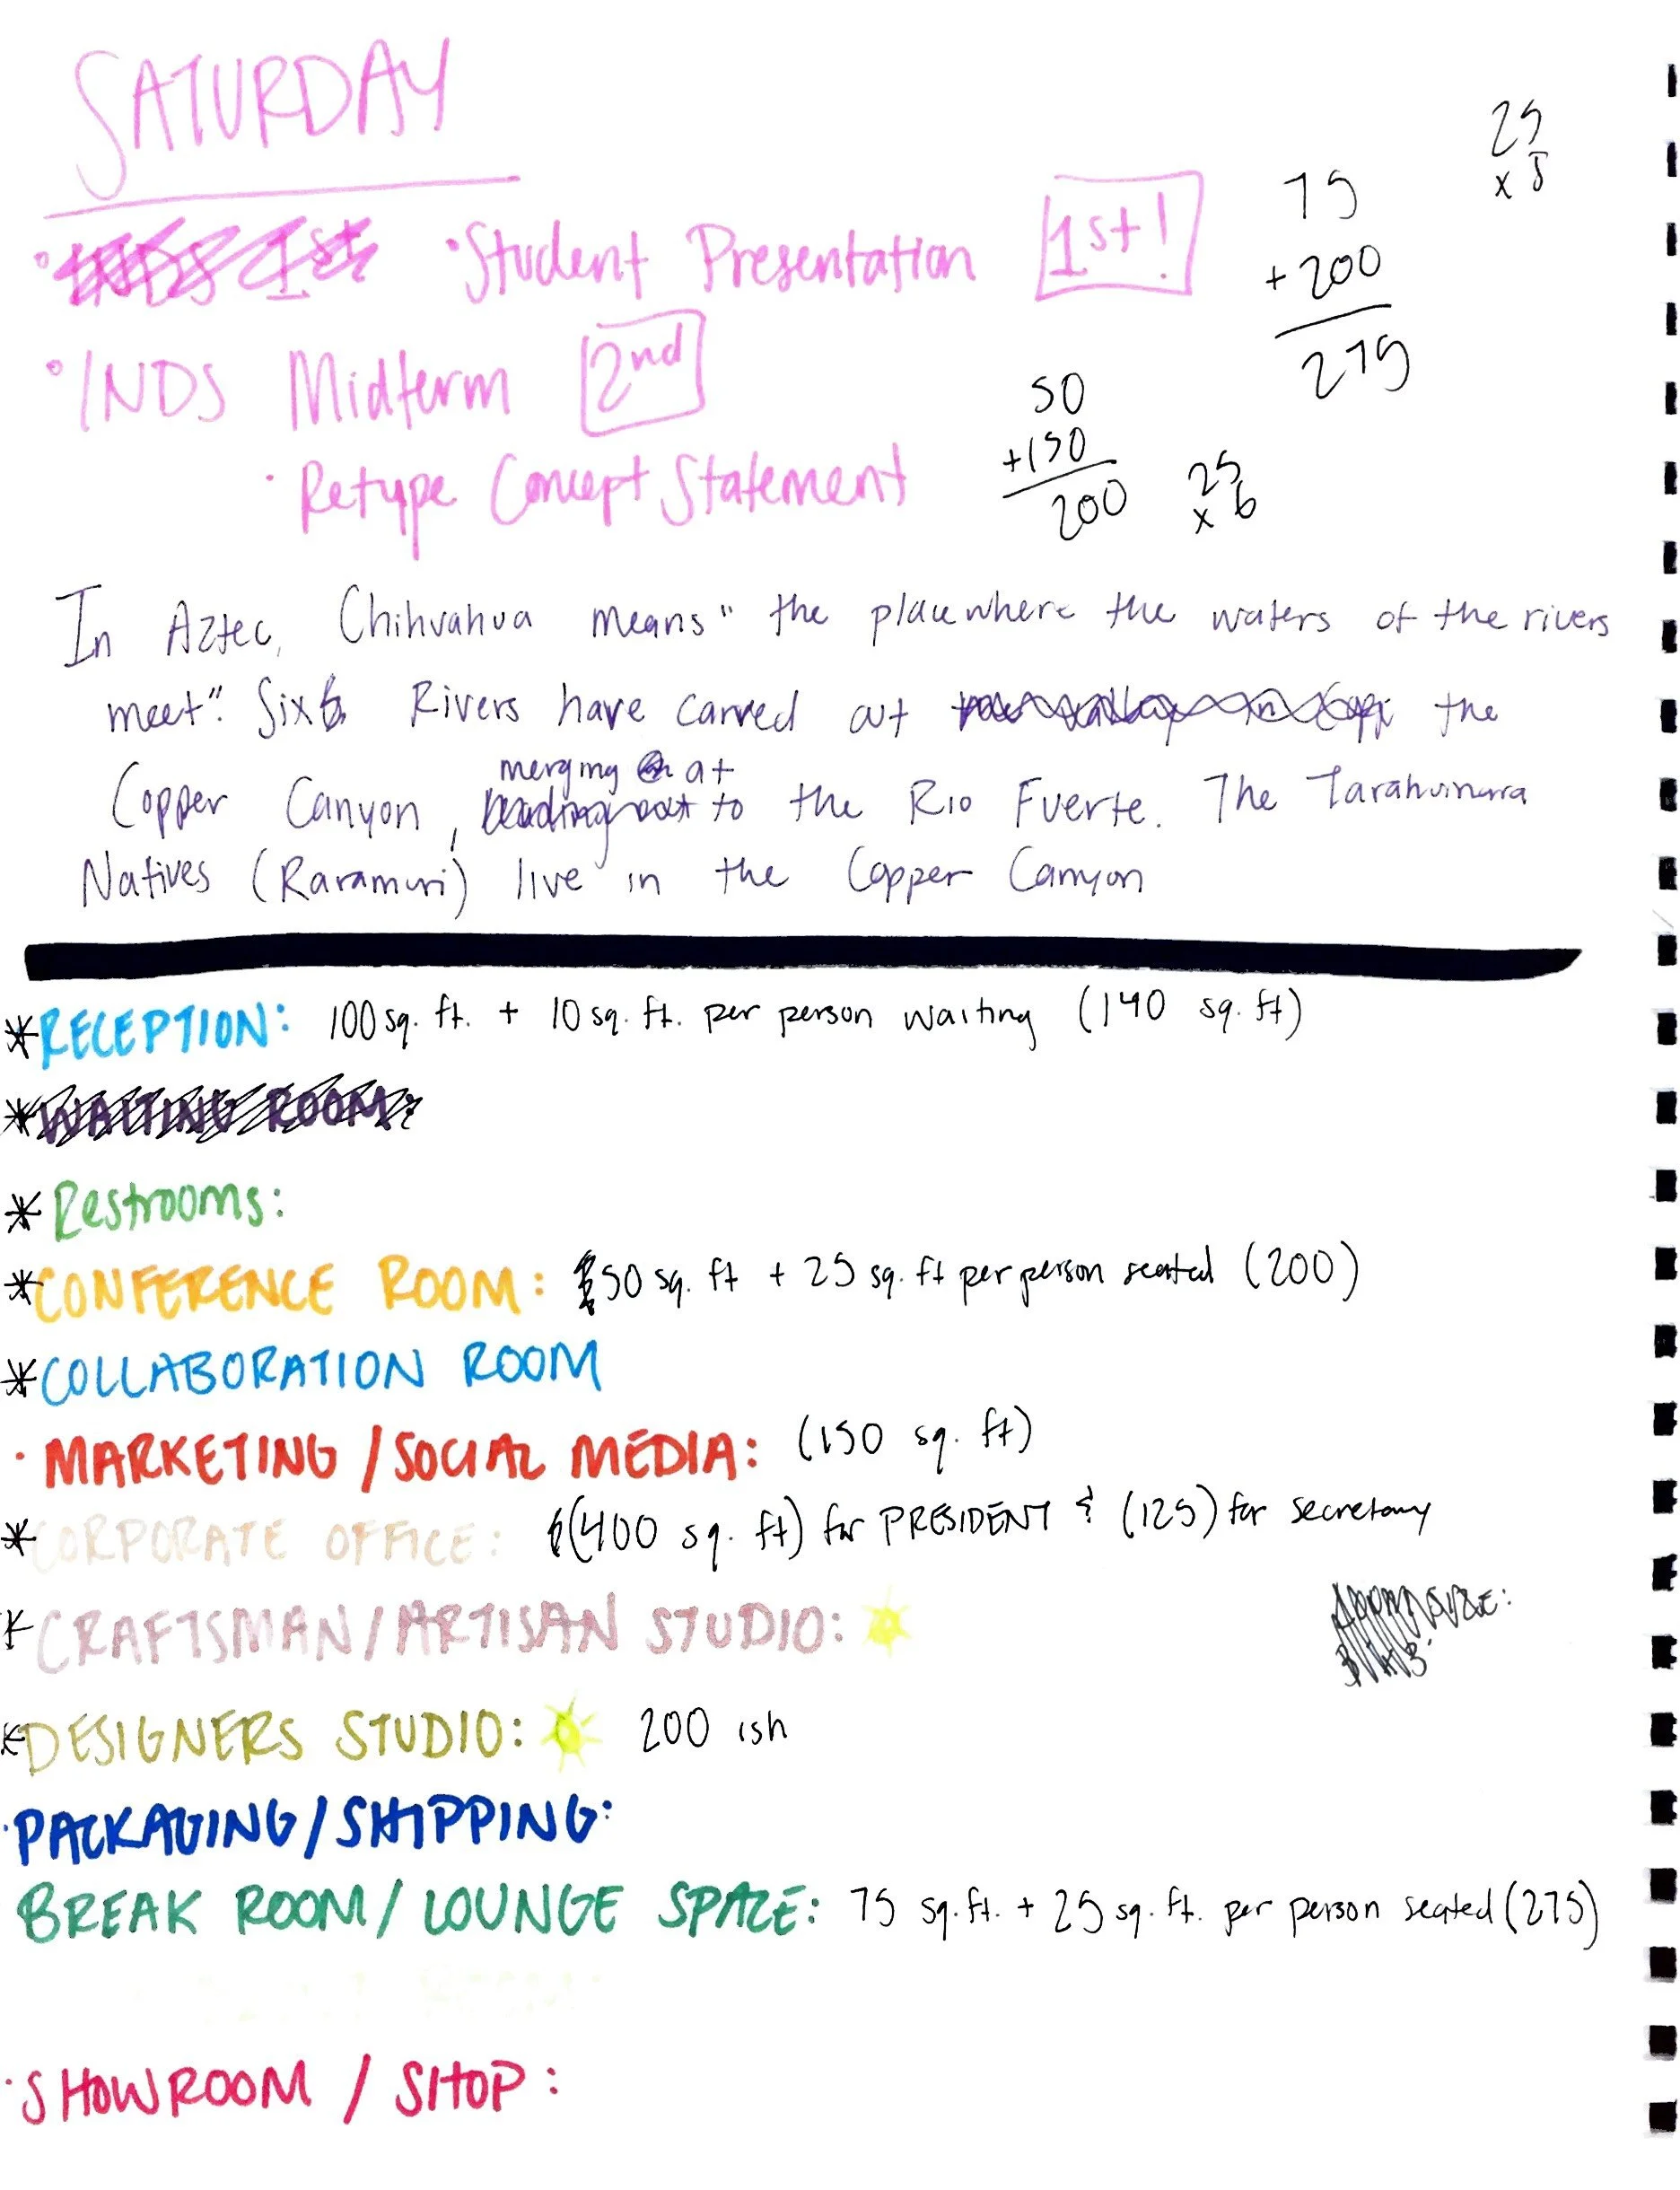 SATURDAY
· Student Presentation 1st!
· INDS Midterm 2nd
· Retype Concept Statement
25
x 8
75
+ 200
275
50
+150
200
25
x 6
In Aztec, Chihuahua means " the place where the waters of the rivers
meet". Six Rivers have carved out the
Copper Canyon, merging at to the Rio Fuerte. The Tarahumara
Natives (Raramuri) live in the Copper Canyon
*RECEPTION: 100 sq. ft. + 10 sq. ft. per person waiting (140 sq. ft)
*WAITING ROOM:
*Restrooms:
*CONFERENCE ROOM: 50 sq. ft + 25 sq. ft per person seated (200)
*COLLABORATION ROOM
· MARKETING / SOCIAL MEDIA: (150 sq. ft)
*CORPORATE OFFICE: (400 sq. ft) for PRESIDENT & (125) for secretary
*CRAFTSMAN/ARTISAN STUDIO:
*DESIGNERS STUDIO: 200 ish
·PACKAGING/SHIPPING:
BREAK ROOM/ LOUNGE SPACE: 75 sq. ft. + 25 sq. ft. per person seated (275)
·SHOWROOM / SHOP: